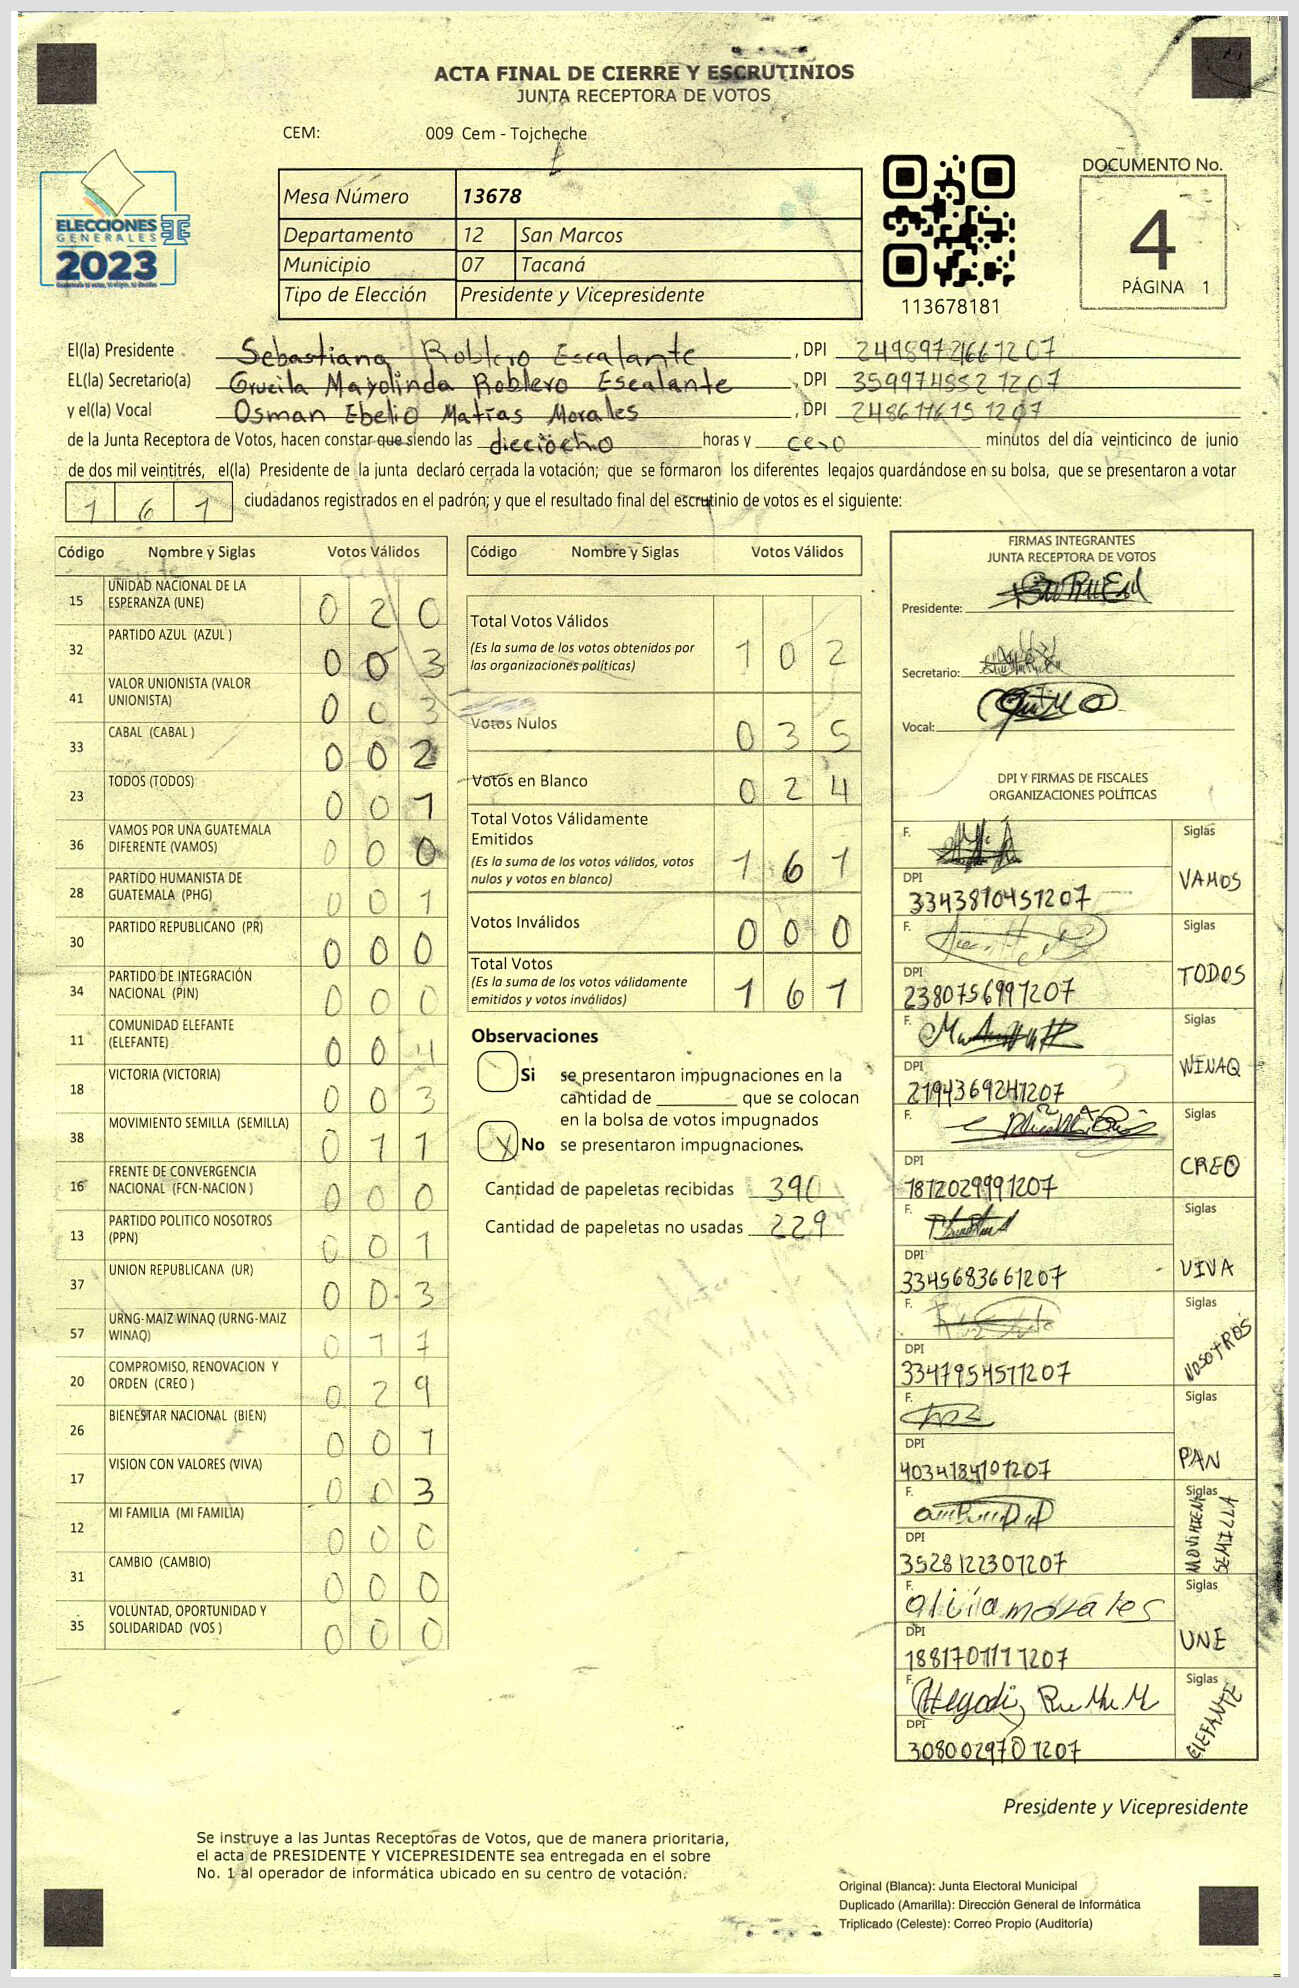 ACTA FINAL DE CIERRE Y ESCRUTINIOS
JUNTA RECEPTORA DE VOTOS
CEM: 009 Cem - Tojcheche
ELECCIONES
GENERALES
2023
Mesa Número 13678
Departamento 12 San Marcos
Municipio 07 Tacaná
Tipo de Elección Presidente y Vicepresidente
113678181
DOCUMENTO No.
4
PÁGINA 1
El(la) Presidente Sebastiana Roblero Escalante, DPI
EL(la) Secretario(a) Mayolinda Roblero Escalante, DPI 359974852 1207
y el(la) Vocal Osman Ebelio Matías Morales, DPI 248611615 1207
de la Junta Receptora de Votos, hacen constar que siendo las dieciocho horas y cero minutos del día veinticinco de junio
de dos mil veintitrés, el(la) Presidente de la junta declaró cerrada la votación; que se formaron los diferentes legajos guardándose en su bolsa, que se presentaron a votar
161 ciudadanos registrados en el padrón; y que el resultado final del escrutinio de votos es el siguiente:
Código Nombre y Siglas Votos Válidos
15 UNIDAD NACIONAL DE LA ESPERANZA (UNE) 0 2 0
32 PARTIDO AZUL (AZUL ) 0 0 3
41 VALOR UNIONISTA (VALOR UNIONISTA) 0 0 3
33 CABAL (CABAL ) 0 0 2
23 TODOS (TODOS) 0 0 1
36 VAMOS POR UNA GUATEMALA DIFERENTE (VAMOS) 0 0 0
28 PARTIDO HUMANISTA DE GUATEMALA (PHG) 0 0 1
30 PARTIDO REPUBLICANO (PR) 0 0 0
34 PARTIDO DE INTEGRACIÓN NACIONAL (PIN) 0 0 0
11 COMUNIDAD ELEFANTE (ELEFANTE) 0 0 4
18 VICTORIA (VICTORIA) 0 0 3
38 MOVIMIENTO SEMILLA (SEMILLA) 0 1 1
16 FRENTE DE CONVERGENCIA NACIONAL (FCN-NACION ) 0 0 0
13 PARTIDO POLITICO NOSOTROS (PPN) 0 0 1
37 UNION REPUBLICANA (UR) 0 0 3
57 URNG-MAIZ WINAQ (URNG-MAIZ WINAQ) 0 1 7
20 COMPROMISO, RENOVACION Y ORDEN (CREO ) 0 2 9
26 BIENESTAR NACIONAL (BIEN) 0 0 1
17 VISION CON VALORES (VIVA) 0 0 3
12 MI FAMILIA (MI FAMILIA) 0 0 0
31 CAMBIO (CAMBIO) 0 0 0
35 VOLUNTAD, OPORTUNIDAD Y SOLIDARIDAD (VOS ) 0 0 0
Código Nombre y Siglas Votos Válidos
Total Votos Válidos 1 0 2
(Es la suma de los votos obtenidos por
las organizaciones políticas)
Votos Nulos 0 3 5
Votos en Blanco 0 2 4
Total Votos Válidamente
Emitidos 1 6 1
(Es la suma de los votos válidos, votos
nulos y votos en blanco)
Votos Inválidos 0 0 0
Total Votos 1 6 1
(Es la suma de los votos válidamente
emitidos y votos inválidos)
Observaciones
Si se presentaron impugnaciones en la
cantidad de ________ que se colocan
en la bolsa de votos impugnados
X No se presentaron impugnaciones.
Cantidad de papeletas recibidas 390
Cantidad de papeletas no usadas 229
FIRMAS INTEGRANTES
JUNTA RECEPTORA DE VOTOS
Presidente:
Secretario:
Vocal:
DPI Y FIRMAS DE FISCALES
ORGANIZACIONES POLÍTICAS
F. Siglas
DPI VAMOS
3343810451207
F. Siglas
DPI TODOS
2380756991207
F. Siglas
DPI WINAQ
2194369241207
F. Siglas
DPI CREO
1872029991207
F. Siglas
DPI VIVA
3345683661207
F. Siglas
DPI NOSOTROS
3347954511207
F. Siglas
DPI PAN
4034184101207
F. Siglas
DPI SEMILLA
3528122301207
F. olivia morales Siglas
DPI UNE
1881701111207
F. Siglas
DPI ELEFANTE
3080029701207
Presidente y Vicepresidente
Se instruye a las Juntas Receptoras de Votos, que de manera prioritaria,
el acta de PRESIDENTE Y VICEPRESIDENTE sea entregada en el sobre
No. 1 al operador de informática ubicado en su centro de votación.
Original (Blanca): Junta Electoral Municipal
Duplicado (Amarilla): Dirección General de Informática
Triplicado (Celeste): Correo Propio (Auditoría)